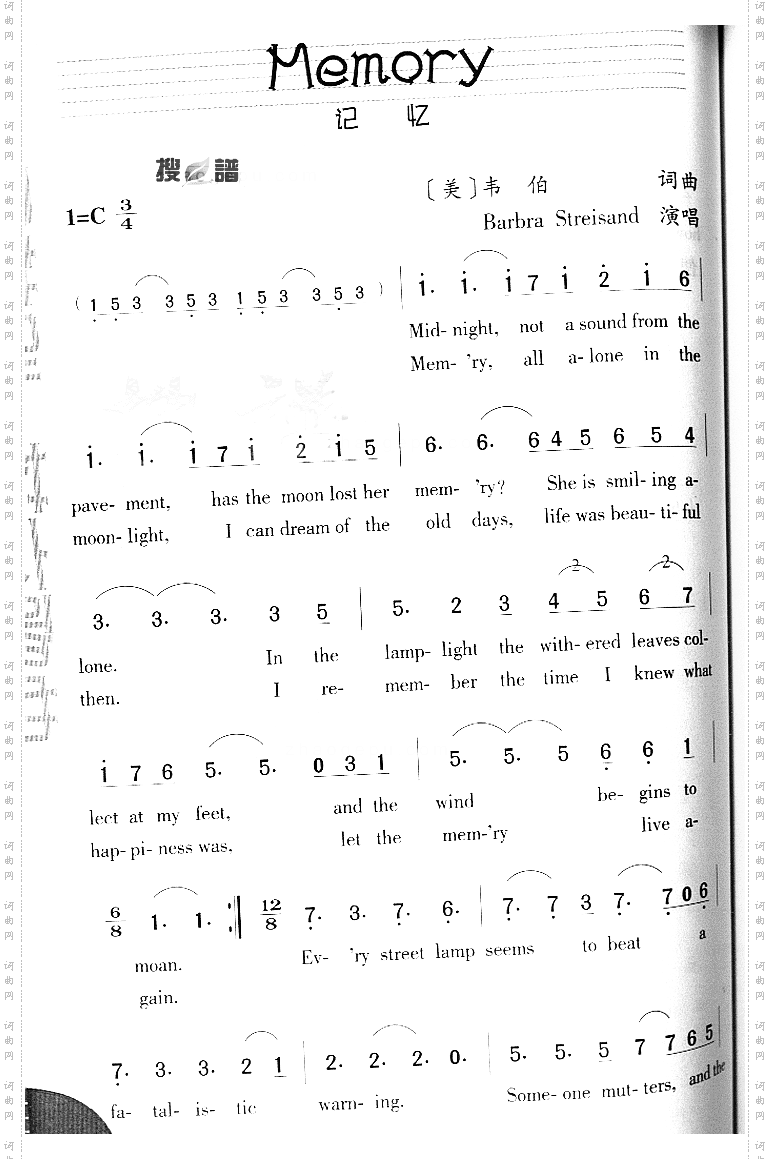 Memory
记 忆
搜 譜
1=C 3/4
〔美〕韦 伯 词曲
Barbra Streisand 演唱
( 1 5 3 3 5 3 1 5 3 3 5 3 ) | 1. 1. 1 7 1 2 1 6 |
Mid- night, not a sound from the
Mem- 'ry, all a- lone in the
1. 1. 1 7 1 2 1 5 | 6. 6. 6 4 5 6 5 4 |
pave- ment, has the moon lost her mem- 'ry? She is smil- ing a-
moon- light, I can dream of the old days, life was beau- ti- ful
3. 3. 3. 3 5 | 5. 2 3 4 5 6 7 |
lone. In the lamp- light the with- ered leaves col-
then. I re- mem- ber the time I knew what
1 7 6 5. 5. 0 3 1 | 5. 5. 5 6 6 1 |
lect at my feet, and the wind be- gins to
hap- pi- ness was, let the mem-'ry live a-
6/8 1. 1. :| 12/8 7. 3. 7. 6. | 7. 7 3 7. 7 0 6 |
moan. Ev- 'ry street lamp seems to beat a
gain.
7. 3. 3. 2 1 | 2. 2. 2. 0. | 5. 5. 5 7 7 6 5 |
fa- tal- is- tic warn- ing. Some- one mut- ters, and the